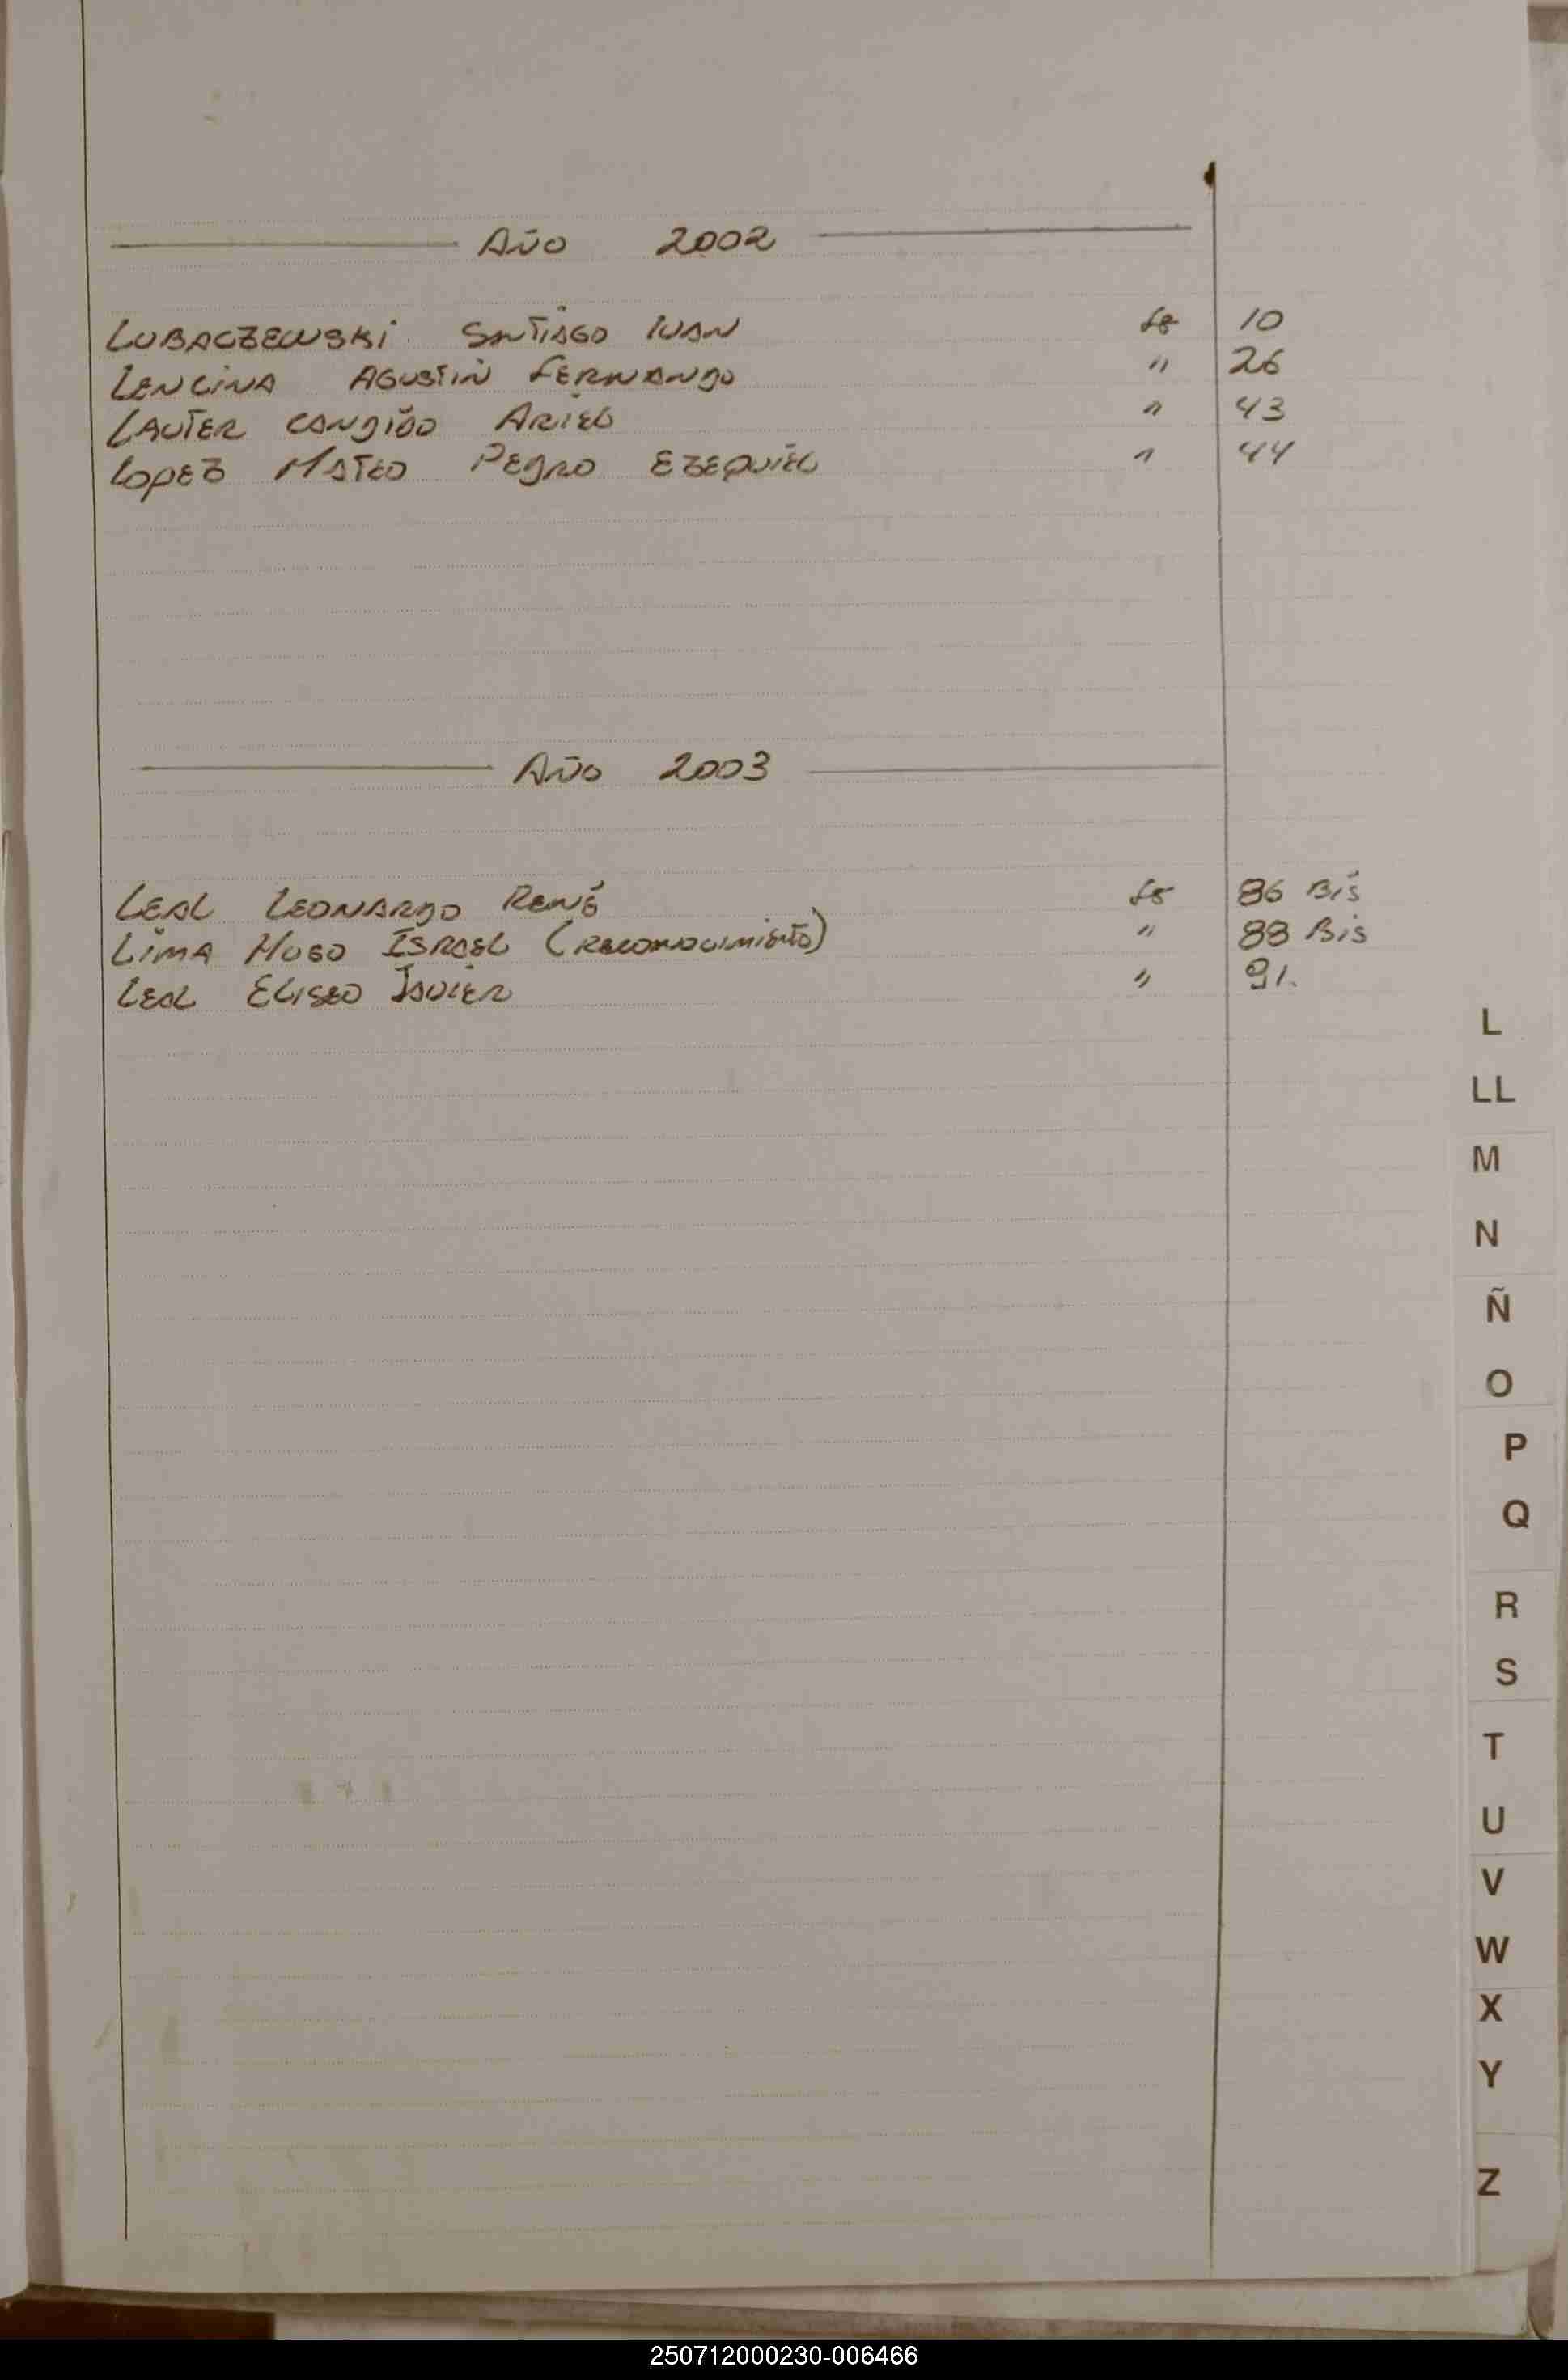 Año 2002
Lubaczewski Santiago Ivan fº 10
Lencina Agustin Fernando " 26
Lauter Candido Ariel " 43
Lopez Mateo Pedro Ezequiel " 44
Año 2003
Leal Leonardo René fº 86 Bis
Lima Hugo Israel (Reconocimiento) " 88 Bis
Leal Eliseo Javier " 91.
L
LL
M
N
Ñ
O
P
Q
R
S
T
U
V
W
X
Y
Z
250712000230-006466